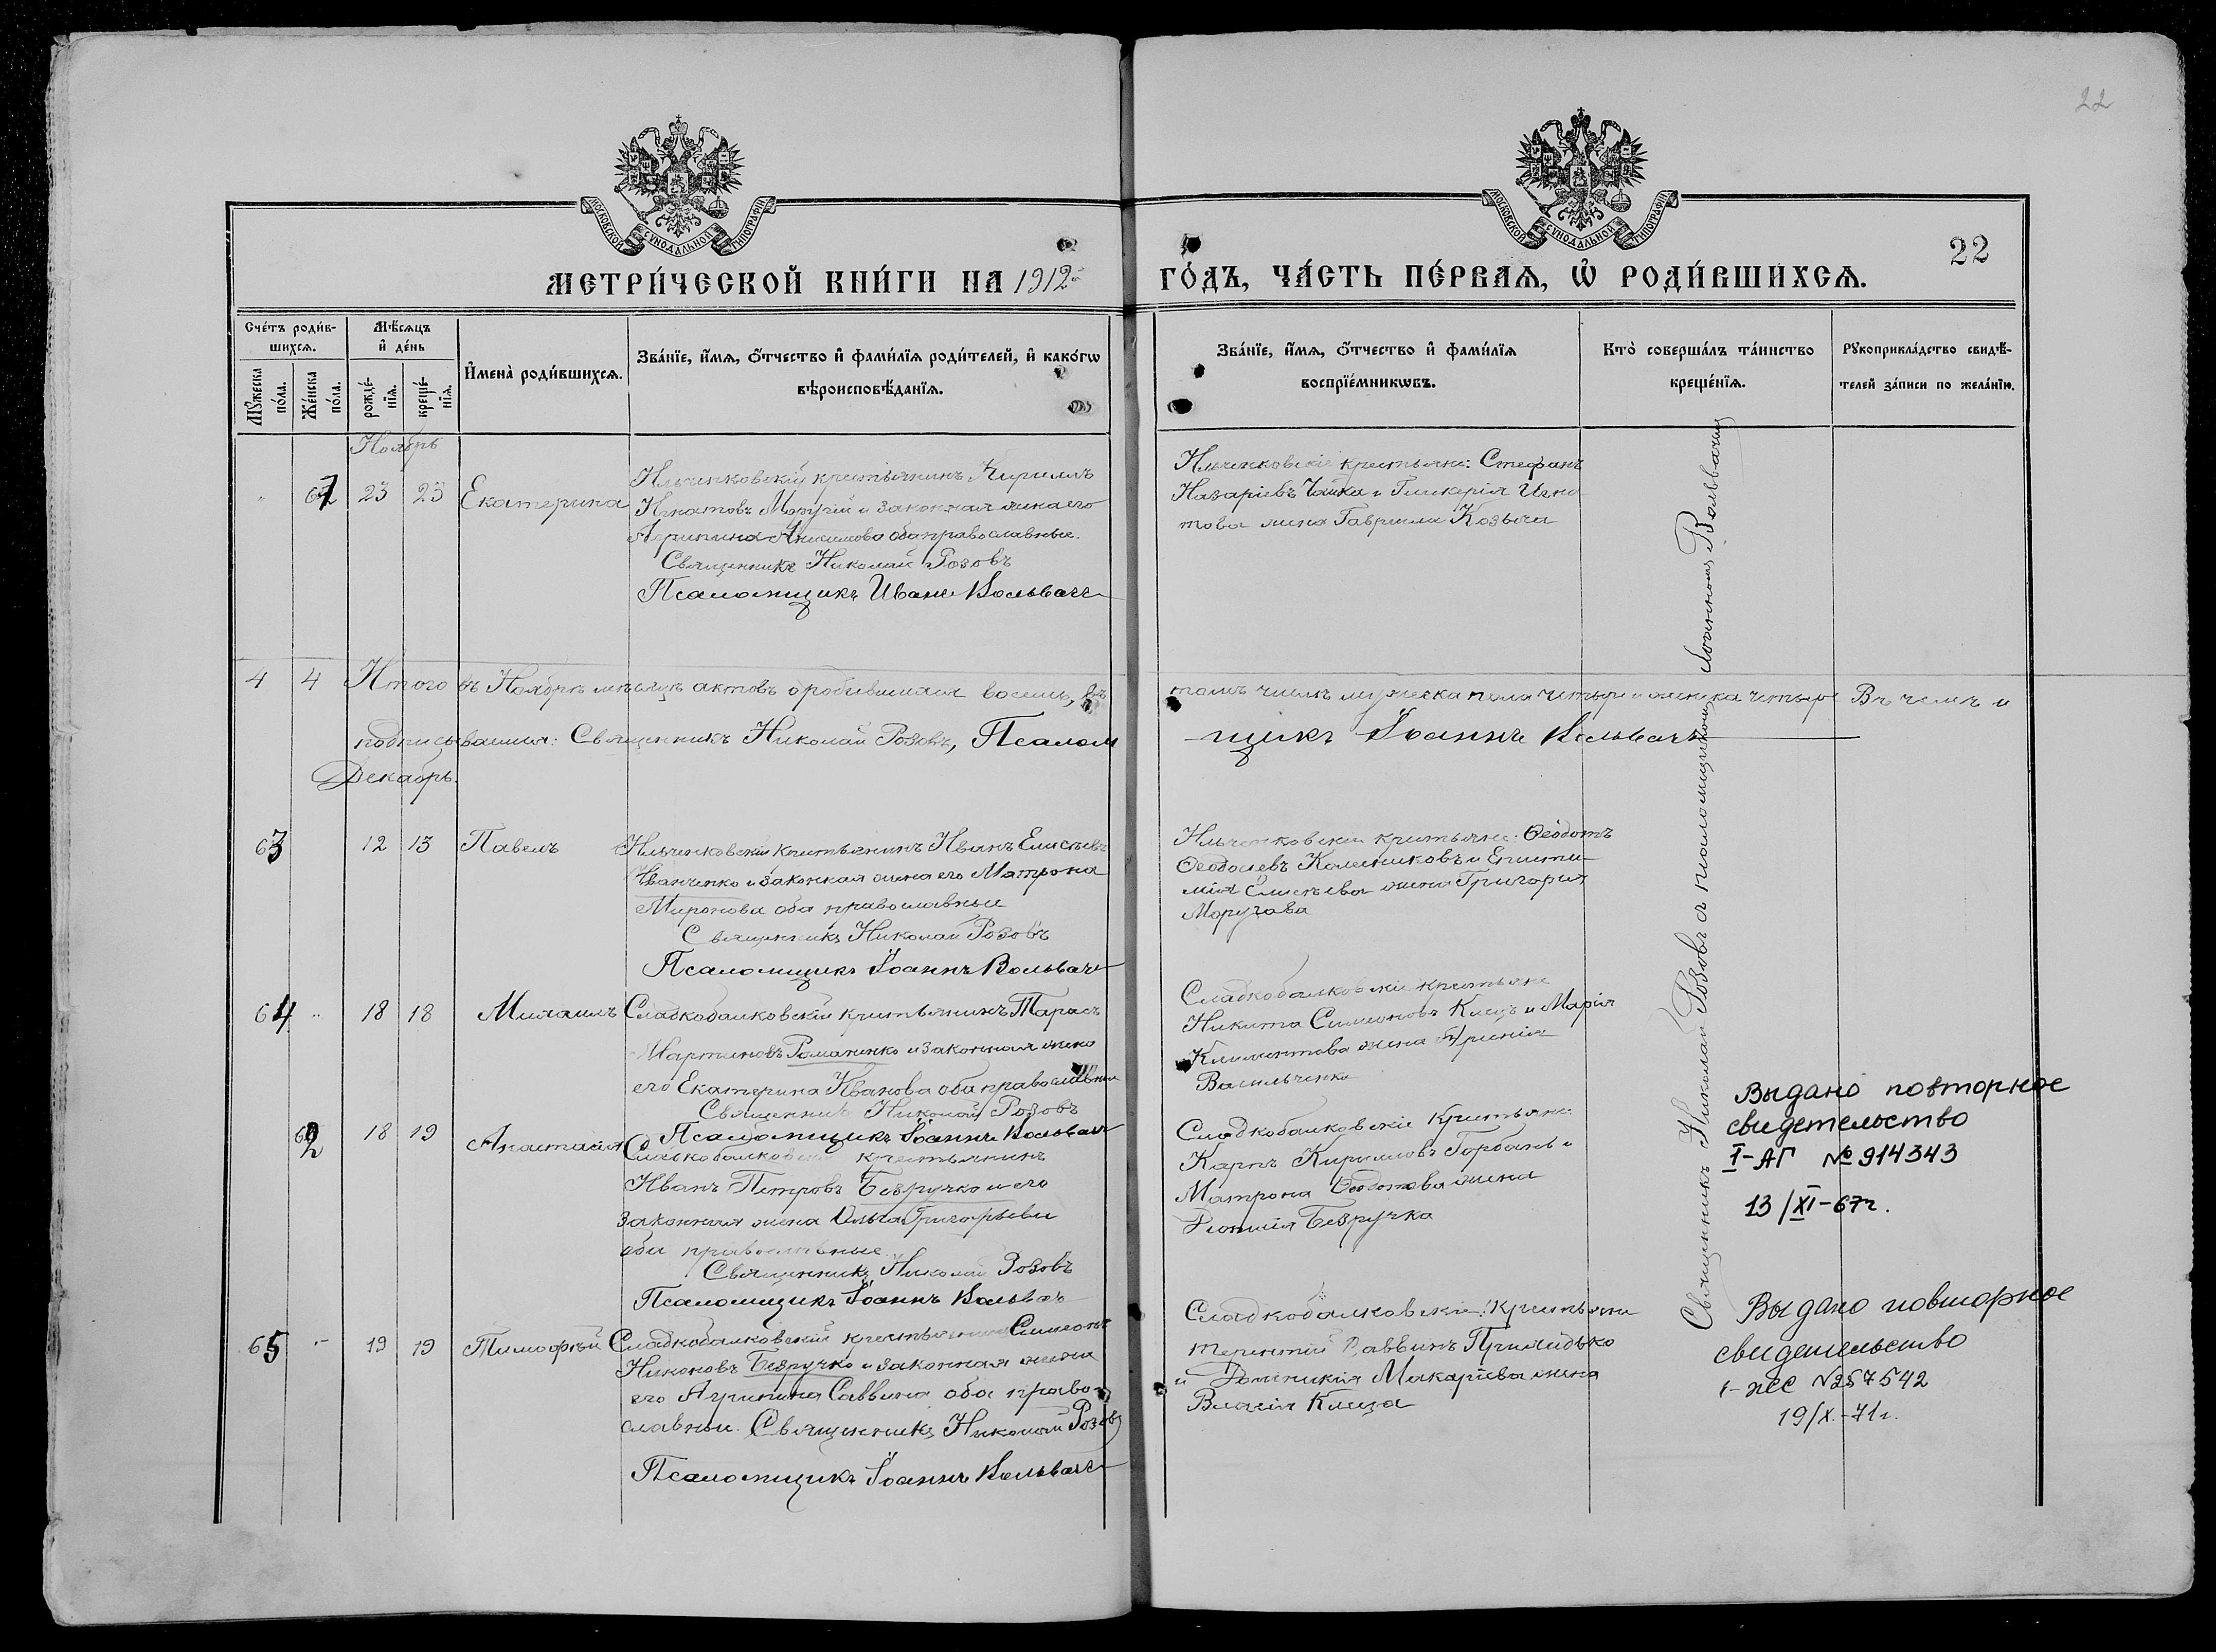 22
МОСКОВСКОЙ СУНОДАЛЬНОЙ ТИПОГРАФІИ
МОСКОВСКОЙ СУНОДАЛЬНОЙ ТИПОГРАФІИ
22
МЕТРИ́ЧЕСКОЙ КНИ́ГИ НА 1912й
ГО́ДЪ, ЧА́СТЬ ПЕ́РВАѦ, Ѡ҆ РОДИ́ВШИХСѦ.
Сче́тъ роди́в-
шихсѧ.
Мꙋ́жеска по́ла.
Же́нска по́ла.
Мѣ́сѧцъ
и҆ де́нь
рожде́-нїѧ.
креще́-нїѧ.
И҆мена̀ роди́вшихсѧ.
Зва́нїе, и҆́мѧ, ѻ҆́тчество и҆ фами́лїѧ роди́телей, и҆ како́гѡ
вѣроисповѣ́данїѧ.
Зва́нїе, и҆́мѧ, ѻ҆́тчество и҆ фами́лїѧ
воспрїе́мникѡвъ.
Кто̀ соверша́лъ та́инство
креще́нїѧ.
Рꙋкоприкла́дство свидѣ́-
телей за́писи по жела́нїю.
Ноябрь
23 23 Екатерина
Ильченковскій крестьянинъ Кириллъ
Игнатовъ и законная жена его
Агрипина Анисимова оба православные.
Священникъ Николай Розовъ
Псаломщикъ Иванъ Вольвачъ
Ильченковскіе крестьяне: Стефанъ
Назаріевъ Чайка и Гликерія Игна
това жена Гавриила Козыча
4 4 Итого въ Ноябрѣ мѣсяцѣ актовъ о родившихся восемь, въ
томъ числѣ мужеска пола четыре и женска четыре Въ чемъ и
подписываемся: Священникъ Николай Розовъ, Псалом
щикъ Іоаннъ Вольвачъ
Декабрь.
63 12 13 Павелъ
Ильченковскій крестьянинъ Иванъ Елисѣевъ
Иванченко и законная жена его Матрона
Миронова оба православные
Священникъ Николай Розовъ
Псаломщикъ Іоаннъ Вольвачъ
Ильченковскіе крестьяне: Ѳеодотъ
Ѳеодосіевъ Колесниковъ и
Елисѣева жена Григорія
64 " 18 18 Михаилъ
Сладкобалковскій крестьянинъ Тарасъ
Мартиновъ Романенко и законная жена
его Екатерина Иванова оба православные
Священникъ Николай Розовъ
Псаломщикъ Іоаннъ Вольвачъ
Сладкобалковскіе крестьяне
Никита Симеоновъ Клецъ и Марія
Климентова жена
Васильченко
62 18 19 Анастасія
Сладкобалковскій крестьянинъ
Иванъ Петровъ Безручко и его
законная жена Ольга Григорьева
оба православные
Священникъ Николай Розовъ
Псаломщикъ Іоаннъ Вольвачъ
Сладкобалковскіе крестьяне:
Карпъ Кирилловъ Горбань и
Матрона Ѳеодотова жена
Безручка
65 " 19 19 Тимофѣй
Сладкобалковскій крестьянинъ Симеонъ
Никоновъ Безручко и законная жена
его Агрипина Саввина оба право-
славные. Священникъ Николай Розовъ
Псаломщикъ Іоаннъ Вольвачъ
Сладкобалковскіе крестьяне
Терентій Саввинъ Прилидько
и Домникія Макаріева жена
Власія Клеца
Священникъ Николай Розовъ съ псаломщикомъ Іоанномъ Вольвачемъ
Выдано повторное
свидетельство
I-АГ № 914343
13/XI-67г.
Выдано повторное
свидетельство
I-ЖС №257542
19/X.-71г.